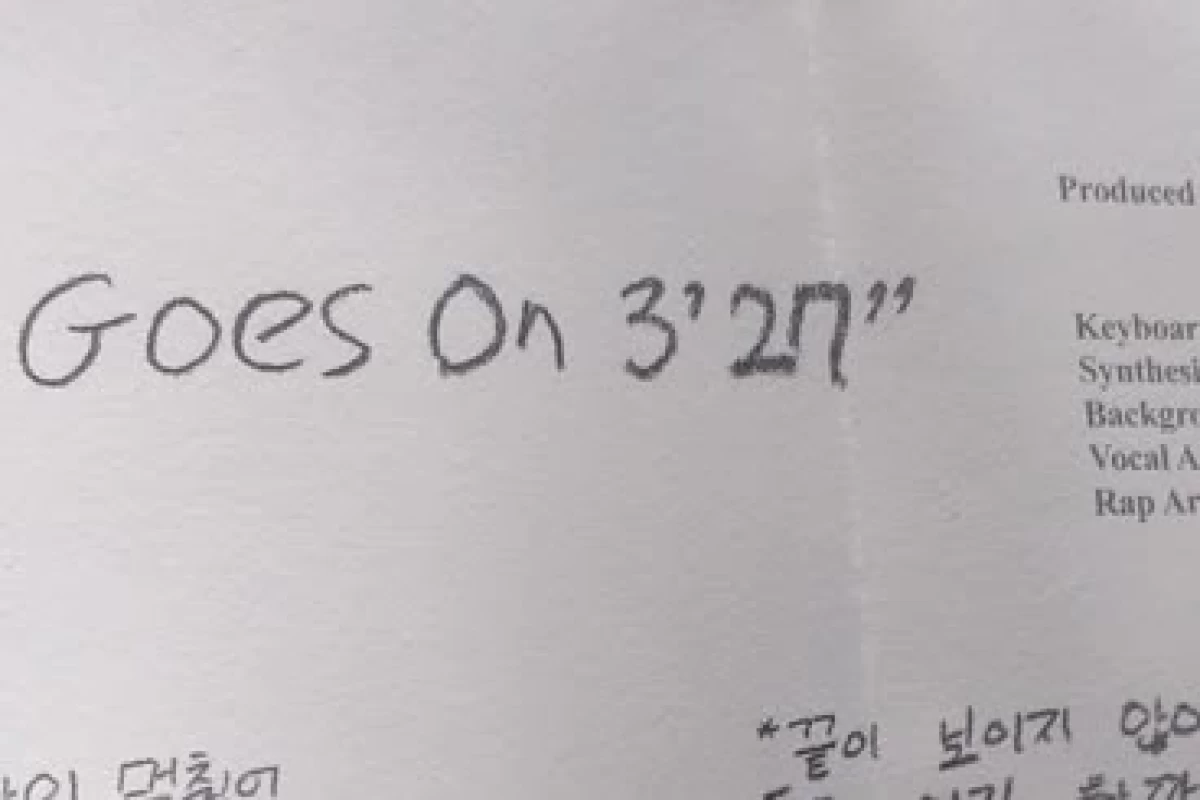 Goes On 3’27”
Produced
Keyboar
Synthesi
Backgro
Vocal A
Rap Ar
*끝이 보이지
멈췄어